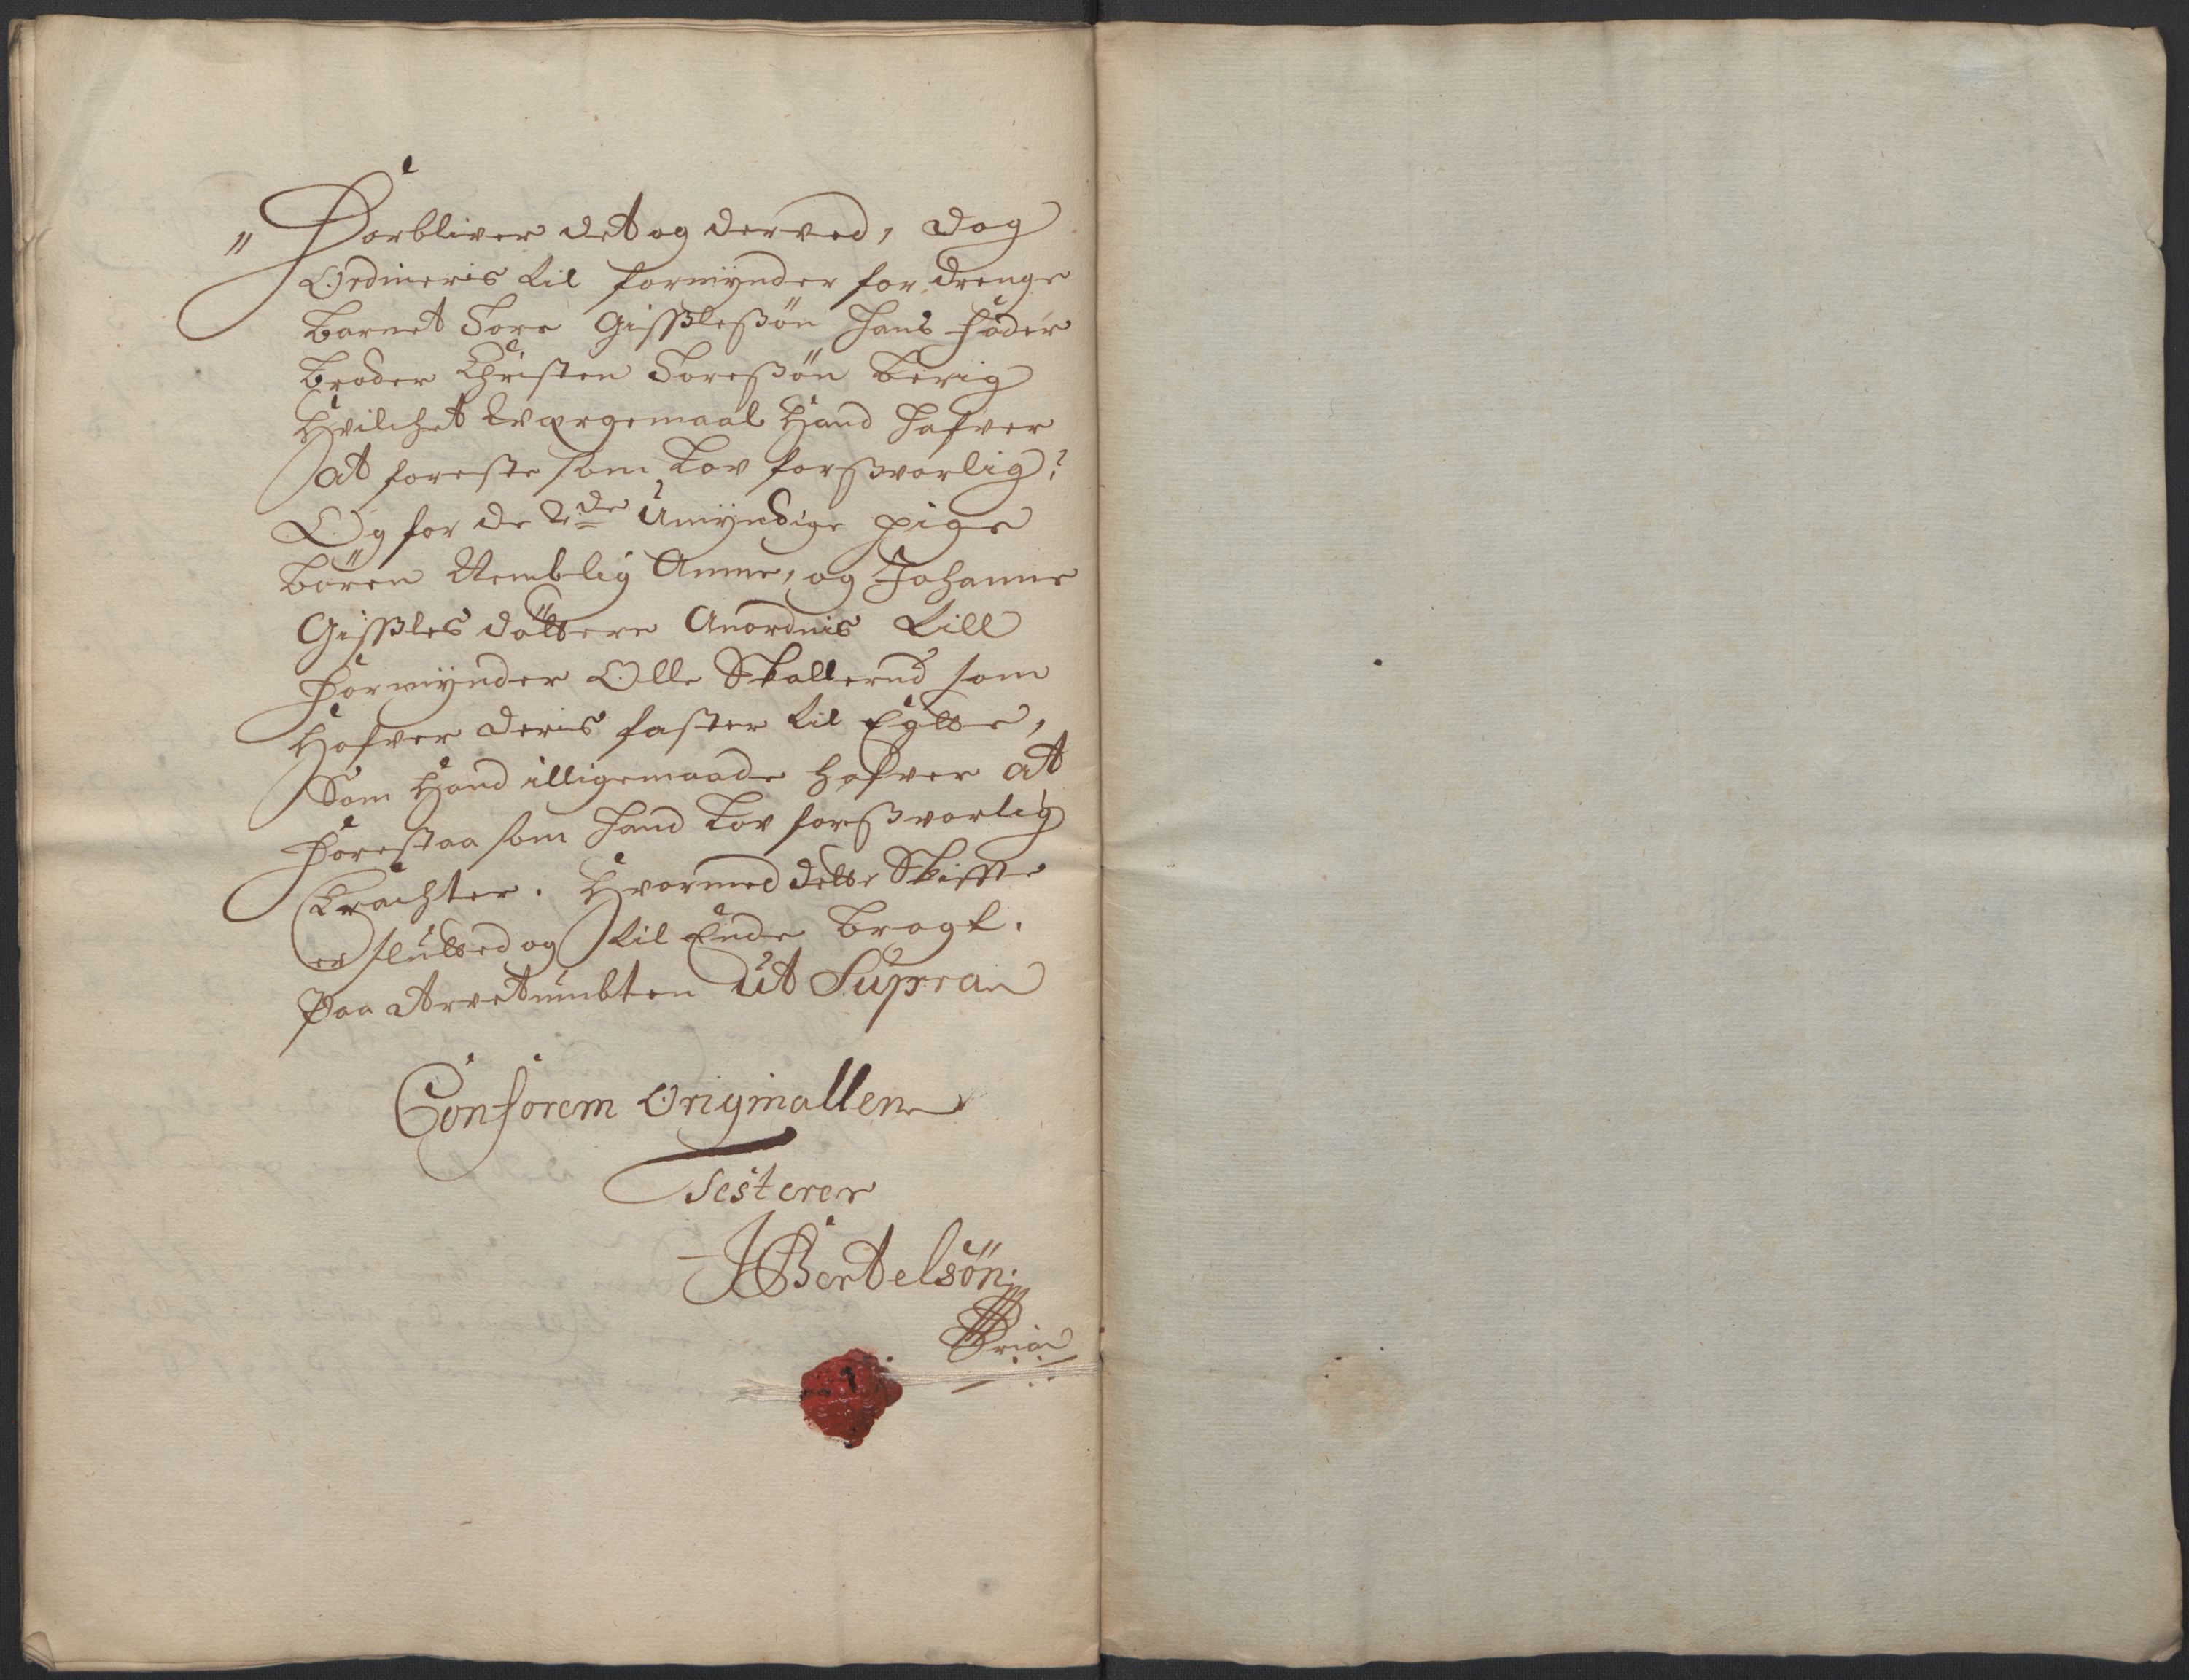 Forbliver det og derved, dog
Ordineris til formÿnder for drenge
barnet Tore Gisszleszön hans fader
broder Christen Toreszön Berig
Hvilchet Værgemaal Hand hafver
at foreste som Lov forszvarlig?
Og for de 2de Umÿndige pige
börn Nemblig Anne, og Johanne
Gisszles döttere Anordnis till
Formÿnder Olle Skallerud som
Hafver deris faster til Egtte,
Som Hand illigemaade hafver at
forestaa som hand Lov forszvarlig
tracter. Hvormed dette Skiffte
er slutted og til Ende bragt.
Paa Arvetumbten ut Supra
Conforem Originallen
Testerer
JBertelsön